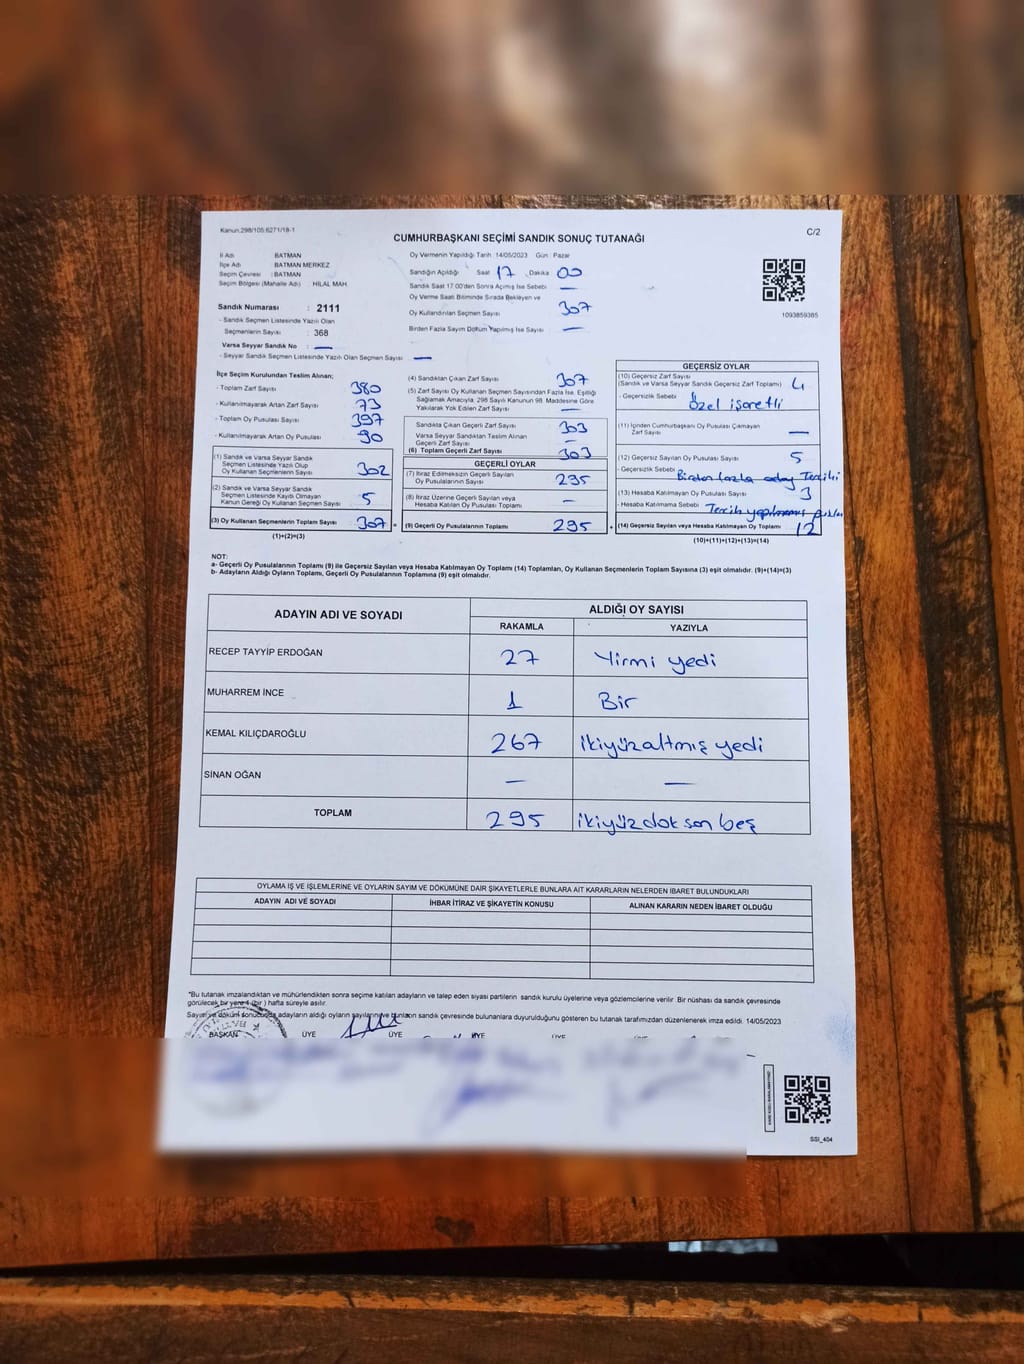 Kanun:298/105;6271/18-1
C/2
CUMHURBAŞKANI SEÇİMİ SANDIK SONUÇ TUTANAĞI
İl Adı BATMAN
İlçe Adı BATMAN MERKEZ
Seçim Çevresi : BATMAN
Seçim Bölgesi (Mahalle Adı) HİLAL MAH.
Sandık Numarası : 2111
- Sandık Seçmen Listesinde Yazılı Olan
Seçmenlerin Sayısı : 368
Varsa Seyyar Sandık No : —
- Seyyar Sandık Seçmen Listesinde Yazılı Olan Seçmen Sayısı : —
Oy Vermenin Yapıldığı Tarih 14/05/2023 Gün Pazar
Sandığın Açıldığı Saat 17 Dakika 00
Sandık Saat 17.00'den Sonra Açımış İse Sebebi —
Oy Verme Saati Bitiminde Sırada Bekleyen ve
Oy Kullandırılan Seçmen Sayısı 307
Birden Fazla Sayım Döküm Yapılmış İse Sayısı : —
1093859385
İlçe Seçim Kurulundan Teslim Alınan;
- Toplam Zarf Sayısı 380
- Kullanılmayarak Artan Zarf Sayısı 73
- Toplam Oy Pusulası Sayısı 397
- Kullanılmayarak Artan Oy Pusulası 90
(1) Sandık ve Varsa Seyyar Sandık
Seçmen Listesinde Yazılı Olup
Oy Kullanan Seçmenlerin Sayısı 302
(2) Sandık ve Varsa Seyyar Sandık
Seçmen Listesinde Kayıtlı Olmayan
Kanun Gereği Oy Kullanan Seçmen Sayısı 5
(3) Oy Kullanan Seçmenlerin Toplam Sayısı 307 =
(1)+(2)=(3)
(4) Sandıktan Çıkan Zarf Sayısı 307
(5) Zarf Sayısı Oy Kullanan Seçmen Sayısından Fazla İse, Eşitliği
Sağlamak Amacıyla; 298 Sayılı Kanunun 98. Maddesine Göre
Yakılarak Yok Edilen Zarf Sayısı —
Sandıkta Çıkan Geçerli Zarf Sayısı 303
Varsa Seyyar Sandıktan Teslim Alınan
Geçerli Zarf Sayısı —
(6) Toplam Geçerli Zarf Sayısı 303
GEÇERLİ OYLAR
(7) İtiraz Edilmeksizin Geçerli Sayılan
Oy Pusulalarının Sayısı 295
(8) İtiraz Üzerine Geçerli Sayılan veya
Hesaba Katılan Oy Pusulası Toplamı —
(9) Geçerli Oy Pusulalarının Toplamı 295 +
GEÇERSİZ OYLAR
(10) Geçersiz Zarf Sayısı
(Sandık ve Varsa Seyyar Sandık Geçersiz Zarf Toplamı) 4
- Geçersizlik Sebebi Özel işaretli
(11) İçinden Cumhurbaşkanı Oy Pusulası Çıkmayan
Zarf Sayısı —
(12) Geçersiz Sayılan Oy Pusulası Sayısı 5
- Geçersizlik Sebebi Birden fazla aday Tercihi
(13) Hesaba Katılmayan Oy Pusulası Sayısı 3
- Hesaba Katılmama Sebebi Tercih yapılmamış
(14) Geçersiz Sayılan veya Hesaba Katılmayan Oy Toplamı 12
(10)+(11)+(12)+(13)=(14)
NOT:
a- Geçerli Oy Pusulalarının Toplamı (9) ile Geçersiz Sayılan veya Hesaba Katılmayan Oy Toplamı (14) Toplamları, Oy Kullanan Seçmenlerin Toplam Sayısına (3) eşit olmalıdır. (9)+(14)=(3)
b- Adayların Aldığı Oyların Toplamı, Geçerli Oy Pusulalarının Toplamına (9) eşit olmalıdır.
ADAYIN ADI VE SOYADI ALDIĞI OY SAYISI
RAKAMLA YAZIYLA
RECEP TAYYİP ERDOĞAN 27 Yirmi yedi
MUHARREM İNCE 1 Bir
KEMAL KILIÇDAROĞLU 267 ikiyüzaltmış yedi
SİNAN OĞAN — —
TOPLAM 295 ikiyüzdoksan beş
OYLAMA İŞ VE İŞLEMLERİNE VE OYLARIN SAYIM VE DÖKÜMÜNE DAİR ŞİKAYETLERLE BUNLARA AİT KARARLARIN NELERDEN İBARET BULUNDUKLARI
ADAYIN ADI VE SOYADI İHBAR İTİRAZ VE ŞİKAYETİN KONUSU ALINAN KARARIN NEDEN İBARET OLDUĞU
*Bu tutanak imzalandıktan ve mühürlendikten sonra seçime katılan adayların ve talep eden siyasi partilerin sandık kurulu üyelerine veya gözlemcilerine verilir. Bir nüshası da sandık çevresinde
görülecek bir yere 1 (bir) hafta süreyle asılır.
Sayım ve döküm sonucunda adayların aldığı oyların sayılarının ve bunların sandık çevresinde bulunanlara duyurulduğunu gösteren bu tutanak tarafımızdan düzenlenerek imza edildi. 14/05/2023
BAŞKAN ÜYE ÜYE ÜYE ÜYE
SSI_404